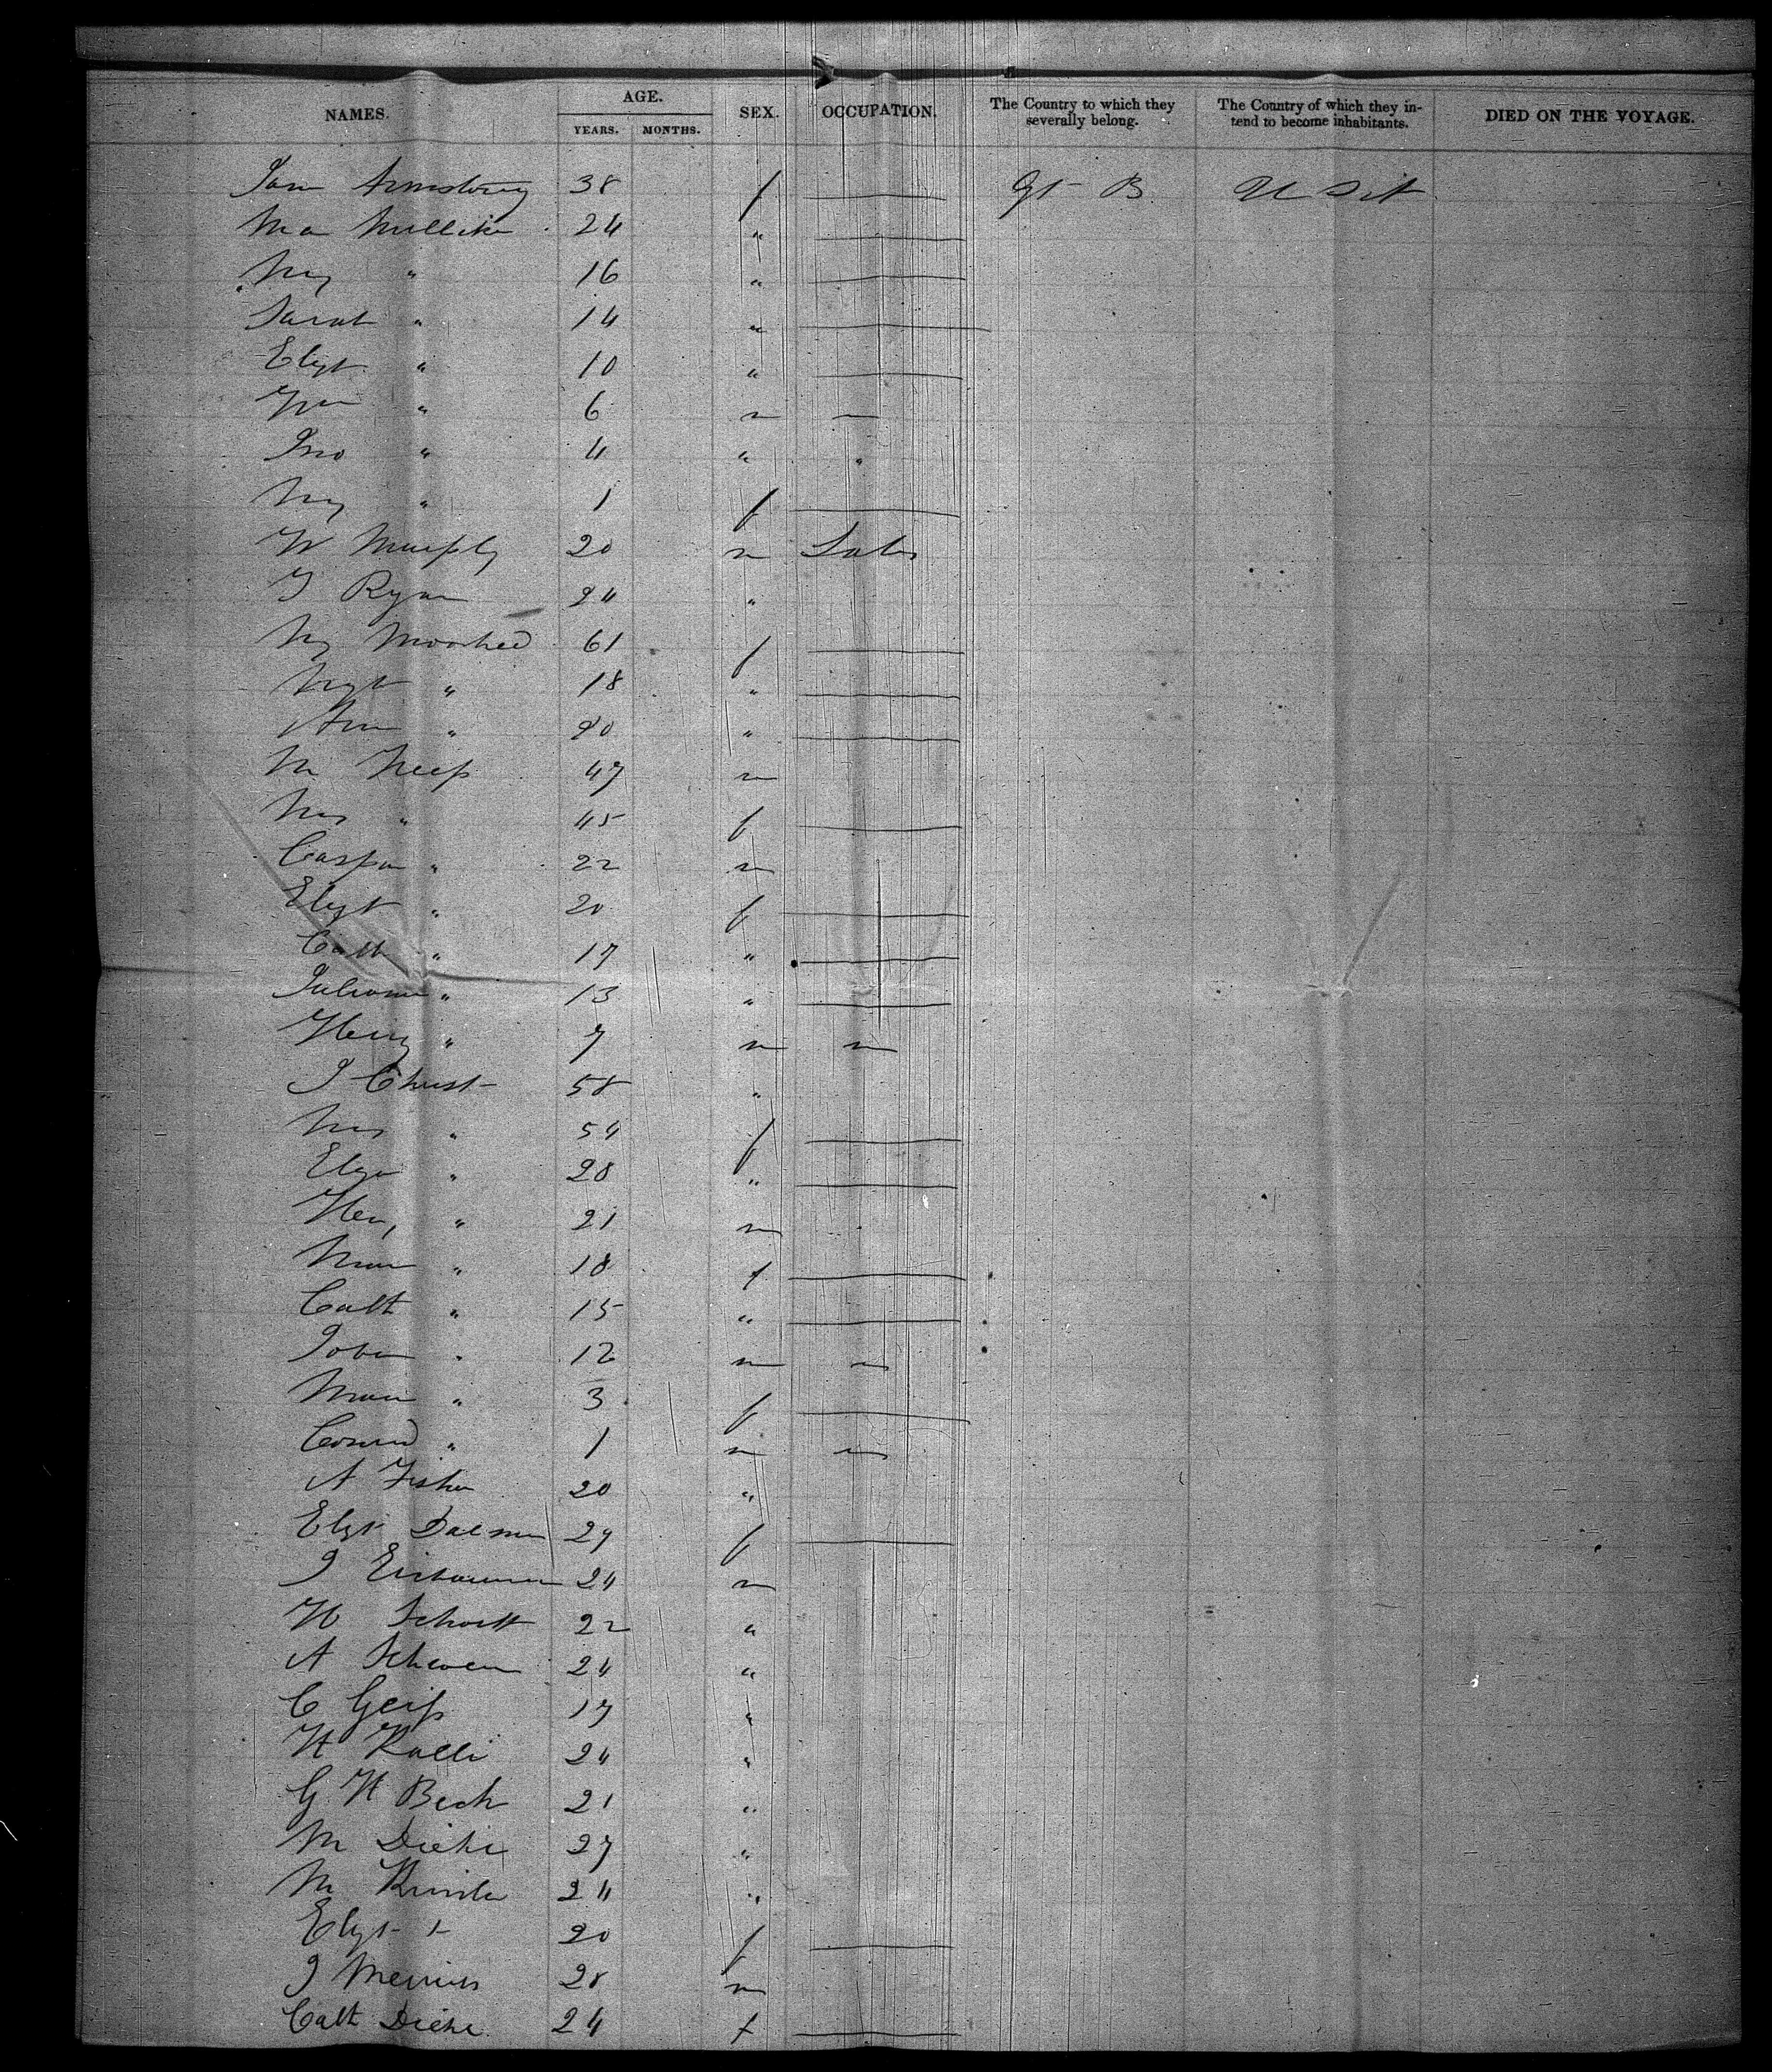 NAMES. AGE. YEARS. MONTHS. SEX. OCCUPATION. The Country to which they severally belong. The Country of which they intend to become inhabitants. DIED ON THE VOYAGE.
Jane Armstrong 38 f Gt B U St
Ma Milliken 24 "
My " 16 "
Sarah " 14 "
Elizt " 10 "
Wm " 6 m
Jno " 4 " "
My " 1 f
W Murphy 20 m Labr
J Ryan 24 "
My Moorhed 61 f
Mgt " 18 "
Ann " 20 "
M 47 m
Mrs " 45 f
Caspar " 22 m
Elizt " 20 f
Cath " 17 "
Juliana " 13 "
Henry " 7 m
J Christ 58 "
Mrs " 54 f
Eliza " 28 "
Hen, " 21 m
" 18 f
Cath " 15 "
Johan " 12 m
" 3 f
Conrad " 1 m
A Fisher 20 "
Elizt 27 f
J 24 m
H Schott 22 "
A 24 "
C Geiß 17 "
H 24 "
G H Bech 21 "
M Diehl 27 "
M 24 "
Elizt 20 f
J 28 m
Cath Diehl 24 f